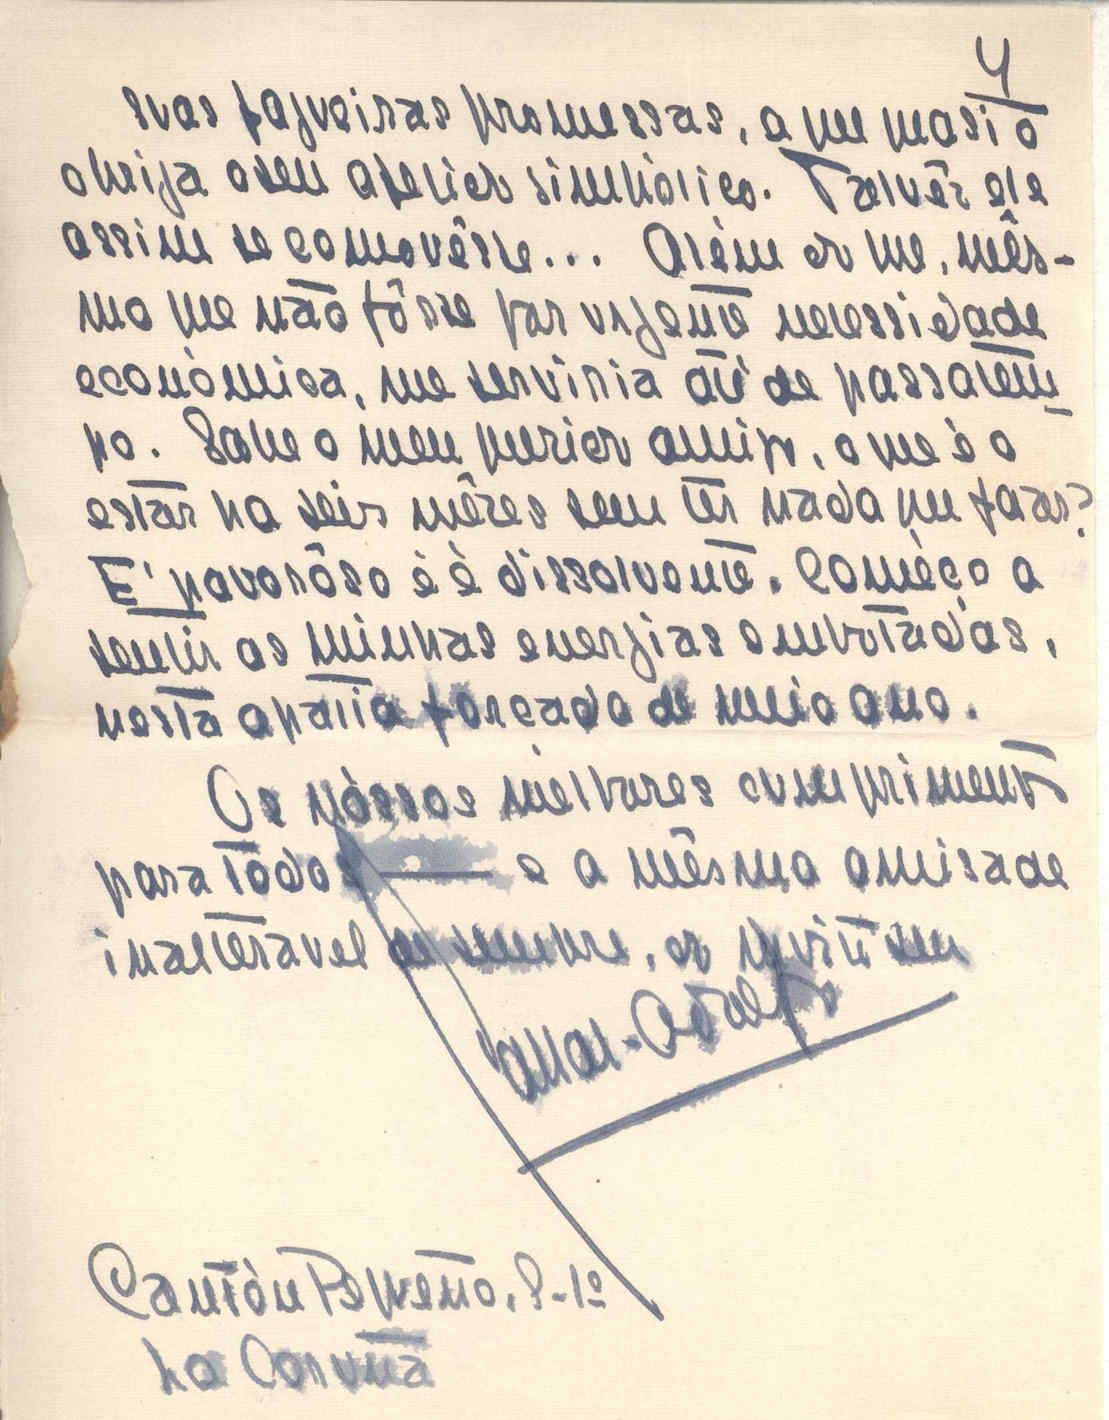 4
suas fagueiras promessas, a que
o seu atelier simbólico. Talvêz ele
assim se comovêsse... Alèm do que, mês-
mo que não fôsse por urgente necessidade
económica, me serviria até de passatem
po. Sabe o meu querido amigo, o que é o
estar ha seis mêzes sem ter nada que fazer?
E' pavorôso e é dissolvente. Começo a
sentir as minhas energias embotadas,
nesta apatia forçada de meio ano.
Os nóssos melhores cumprimentos
para todos — e a mêsma amisade
inalteravel de sempre, do muito seu
Cantón Pequeño, 8-1º
La Coruña